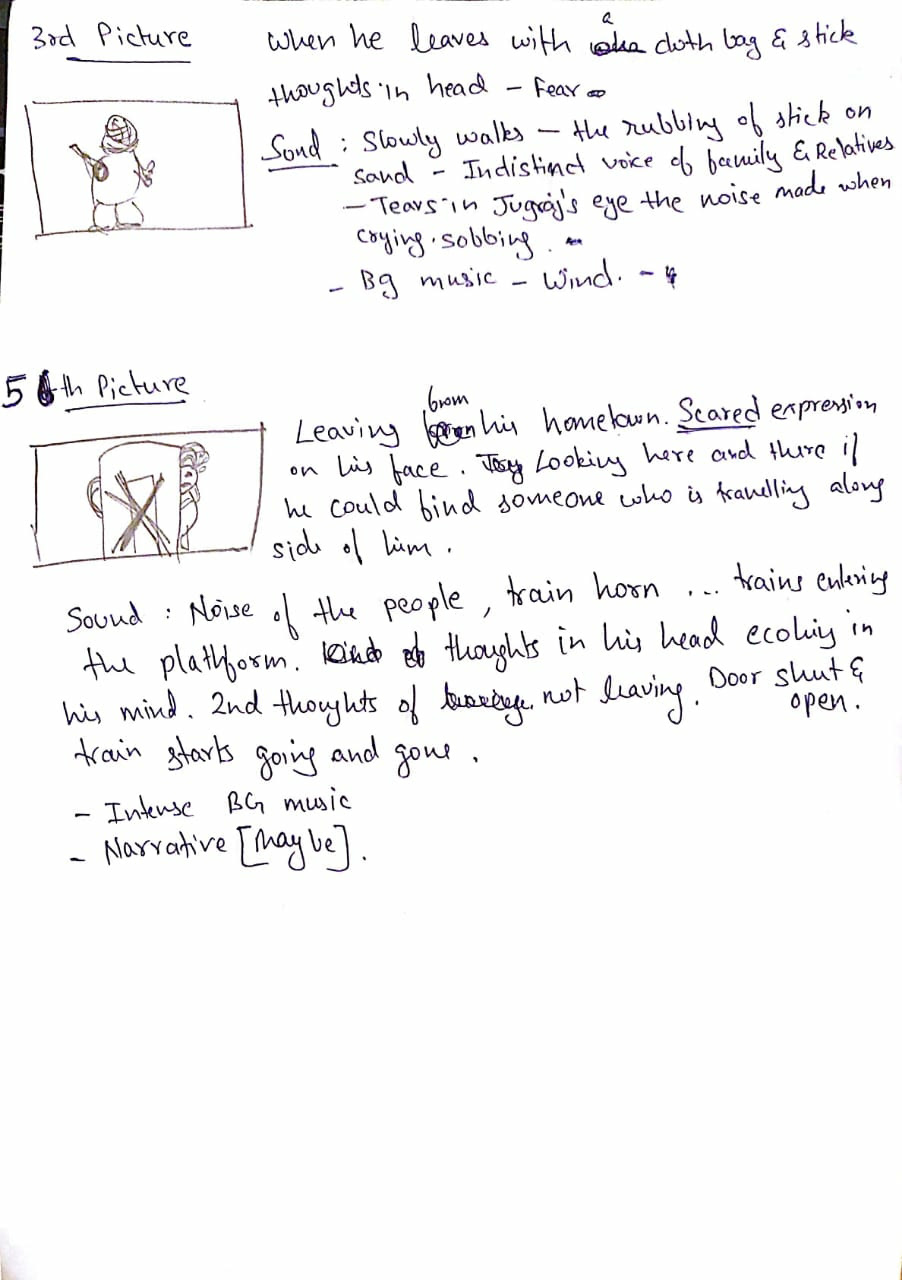 3rd Picture
When he leaves with a cloth bag & stick
thoughts in head - Fear
Sond : Slowly walks - the rubbing of stick on
sand - Indistinct voice of family & Relatives
- Tears in Jugraj's eye the noise made when
crying. sobbing.
- BG music - Wind. -
5th Picture
Leaving from his hometown. Scared expression
on his face. Looking here and there if
he could find someone who is travelling along
side of him.
Sound : Noise of the people, train horn ... trains entering
the platform. thoughts in his head ecohiy in
his mind. 2nd thoughts of not leaving. Door shut &
open.
train starts going and gone.
- Intense BG music
- Narrative [Maybe].